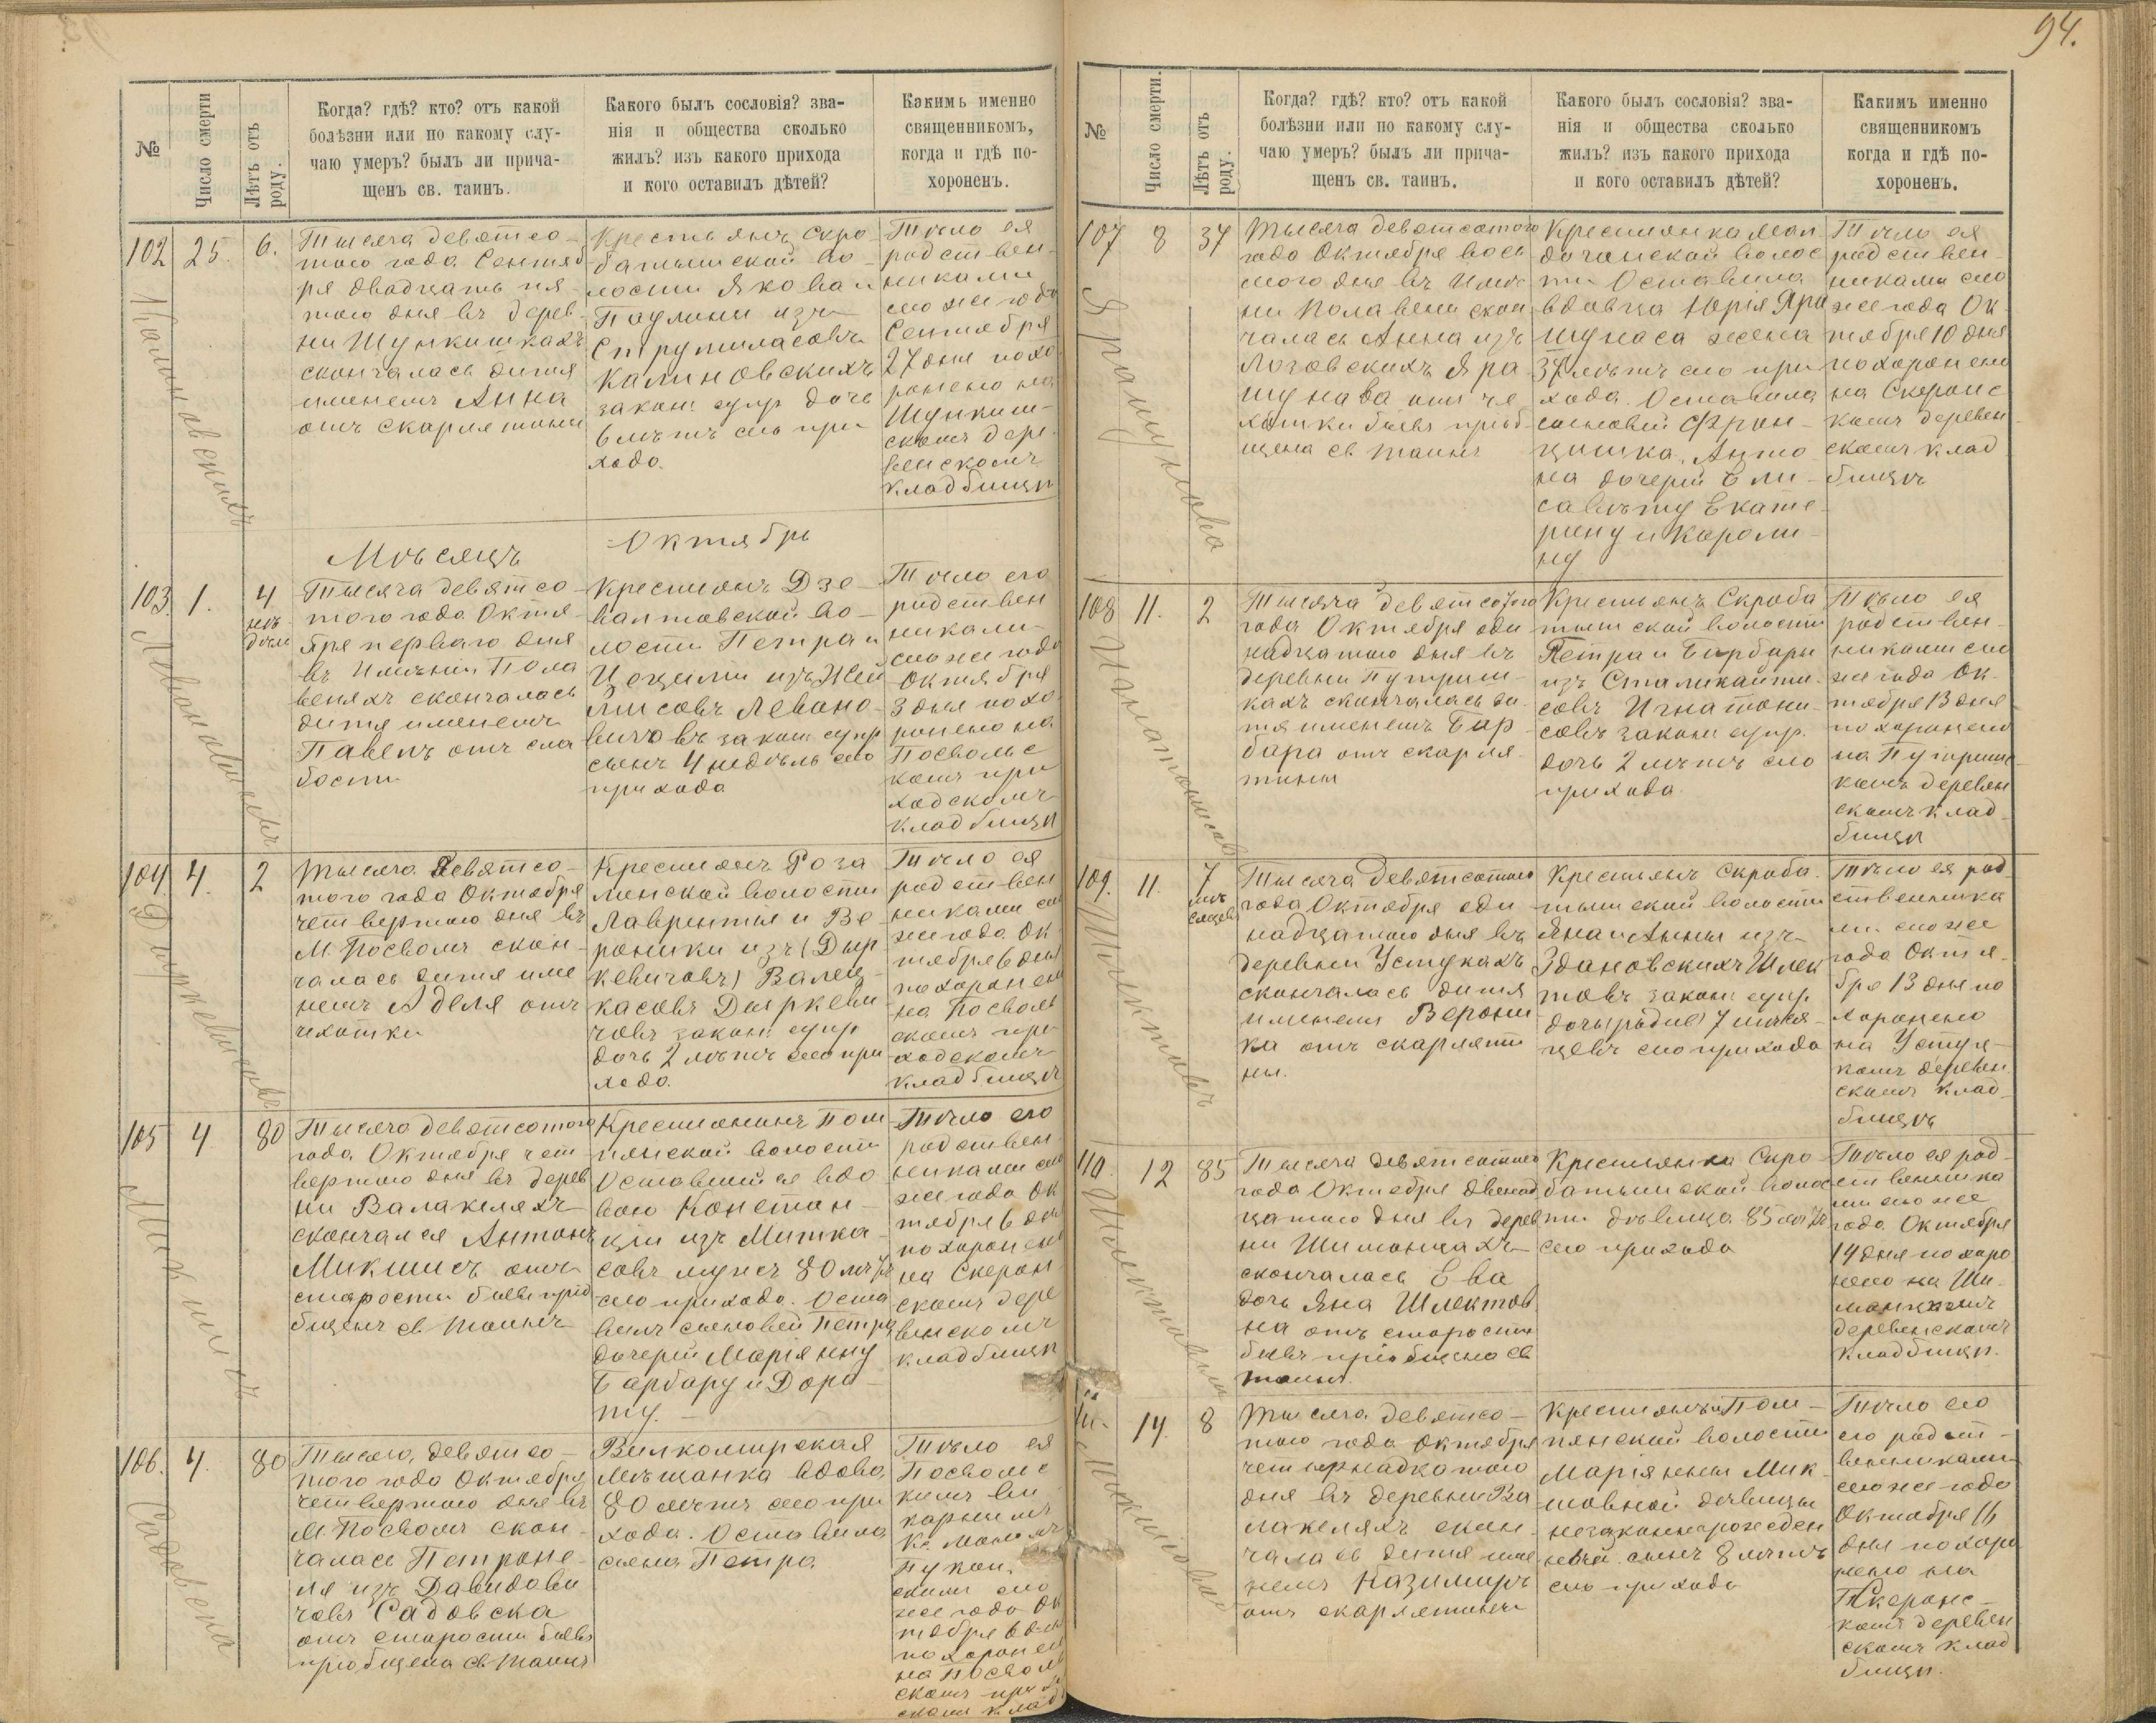 94.
№
Число смерти
Лѣтъ отъ роду.
Когда? гдѣ? кто? отъ какой
болѣзни или по какому слу-
чаю умеръ? былъ ли прича-
щенъ св. таинъ.
Какого былъ сословія? зва-
нія и общества сколько
жилъ? изъ какого прихода
и кого оставилъ дѣтей?
Какимъ именно
священникомъ,
когда и гдѣ по-
хороненъ.
102
25.
6.
Калиновскихъ
Тысяча девятсо-
таго года Сентяб
ря двадцать пя-
таго дня въ дерев-
ни Шункишкахъ
скончалась дитя
именемъ Анна
отъ скарлятины
Крестьянъ Скро-
батышской во-
лости Якова и
Паулины изъ
Струмиласовъ
Калиновскихъ
закон: супр дочь
6 лѣтъ сего при
хода.
Тѣло ея
родствен-
никами
сего же года
Сентября
27 дня похо
ронено на
Шункиш-
скомъ дере-
венскомъ
кладбищѣ
Мѣсяцъ Октябрь
103.
1.
4
не-
дѣли
Тысяча девятсо-
таго года Октя-
бря перваго дня
въ Имѣнии Пола
веняхъ скончалась
дитя именемъ
Павелъ отъ сла
бости
Крестьянъ Дзе-
валтовской во-
лости Петра и
Левоно-
вичовъ закон супр
сынъ 4 недѣль сего
прихода
Тѣло его
родствен
никами
сего же года
Октября
3 дня похо
ронено на
Посвольс
комъ при
ходскомъ
кладбищѣ
104
4.
2
Дыркевичовъ
Тысяча Девятсо-
таго года Октября
четвертаго дня въ
М. Посволѣ скон-
чалась дитя име
немъ Аделя отъ
чахотки
Крестьянъ Роза
линской волости
Лаврентія и Ве
роники изъ (Дыр
кевичовъ) Валец-
касовъ Дыркеви
човъ закон: супр
дочь 2 лѣтъ сего при
хода.
Тѣло ея
родствен
никами сего
же года Ок
тября 6 дня
похоронено
на Посволь
скомъ при
ходскомъ
кладбищѣ
105
4.
80
Микшисъ
Тысяча девятсотаго
года Октября чет
вертаго дня въ дерев
ни Валакеляхъ
скончался Антонъ
Микшисъ отъ
старости бывъ пріоб
бщенъ св Таинъ
Крестьянинъ Пом
пянской волости
Оставшийся вдо
вою Констан-
ціи изъ Митка-
совъ мужъ 80 лѣтъ
сего прихода. Оста
вилъ сыновей Петра
дочерей Маріянну
Барбару и Доро-
ту. -
Тѣло его
родствен
никами сего
же года Ок
тября 6 дня
похоронено
на Скерон
скомъ дере
венскомъ
кладбищѣ
106.
4.
80
Садовска
Тысяча девятсо-
таго года Октября
четвертаго дня въ
М. Посволѣ скон-
чалась Петроне-
ля изъ Давидови
човъ Садовска
отъ старости бывъ
пріобщена св Таинъ
Вилкомирская
Мѣщанка вдова
80 лѣтъ сего при
хода. Оставила
сына Петра
Тѣло ея
Посвольс
кимъ ви
карнымъ
Кс.
сего
же года Ок
тября 6 дня
похоронено
на Посволь
скомъ прих
скомъ клад
№
Число смерти.
Лѣтъ отъ роду.
Когда? гдѣ? кто? отъ какой
болѣзни или по какому слу-
чаю умеръ? былъ ли прича-
щенъ св. таинъ.
Какого былъ сословія? зва-
нія и общества сколько
жилъ? изъ какого прихода
и кого оставилъ дѣтей?
Какимъ именно
священникомъ
когда и гдѣ по-
хороненъ.
107
8
37
Тысяча девятсотаго
года Октября вось
маго дня въ Имѣ
ни Полавени скон
чалась Анна изъ
Лозовскихъ Яра
шунова отъ ча
хотки бывъ пріоб
щена св Таинъ
Крестьянка
волос
ти Оставила
вдовца Юрія Яра
шунаса жена
37 лѣтъ сего при
хода. Оставила
сыновей Фран-
цишка, Анто
на дочерей Ели-
савету Екате
рину и Кароли-
ну
Тѣло ея
родствен-
никами сего
же года Ок-
тября 10 дня
похоронено
на Скеронс
комъ деревен
скомъ клад
бищѣ
108
11.
2
Тысяча девятсотаго
года Октября оди
надцатаго дня въ
деревни Путриш-
кахъ скончалась ди
тя именемъ Бар-
бара отъ скарля-
тины
Крестьянъ Скроба
тышской волости
Петра и Барбары
изъ Сталикайти-
совъ Игнатони-
совъ закон супр.
дочь 2 лѣтъ сего
прихода.
Тѣло ея
родствен-
никами сего
же года Ок-
тября 13 дня
похоронено
на Путриш-
комъ деревен
скомъ клад-
бищѣ
109.
11.
7
мѣ-
сяцевъ
Шлектовъ
Тысяча девятсотаго
года Октября оди
надцатаго дня въ
деревни Устукахъ
скончалась дитя
именемъ Верони
ка отъ скарляти
ны.
Крестьянъ Скроба-
тышской волости
Яна и Анны изъ
Здановскихъ Шлек
товъ закон: супр.
дочь 7 мѣся-
цевъ сего прихода
Тѣло ея род
ственника
ми сего же
года Октя-
бря 13 дня по
хоронено
на Устуц-
комъ деревен
скомъ клад-
бищѣ
110.
12
85
Тысяча девятсотаго
года Октября двенад
цатаго дня въ дерев
ни Шиманцахъ
скончалась Ева
дочь Яна Шлектов
на отъ старости
бывъ пріобщена св
Таинъ.
Крестьянка Скро-
батышской волос
ти дѣвица 85 лѣтъ
сего прихода
Тѣло ея род-
ственника
ми сего же
года Октября
14 дня похоро
нено на Ши-
манцкомъ
деревенскомъ
кладбищѣ.
111.
14.
8
Тысяча девятсо-
таго года Октября
четырнадцатаго
дня въ деревни Ва
лакеляхъ скон-
чалась дитя име
немъ Казимиръ
отъ скарлятины
Крестьянъ Пом-
пянской волости
Маріянны Мик-
шовной дѣвицы
незаконнорожден
сынъ 8 лѣтъ
сего прихода
Тѣло его
его родст-
венниками
сего же года
Октября 16
дня похоро
нено на
Скеронс-
комъ деревен
скомъ клад
бищѣ.